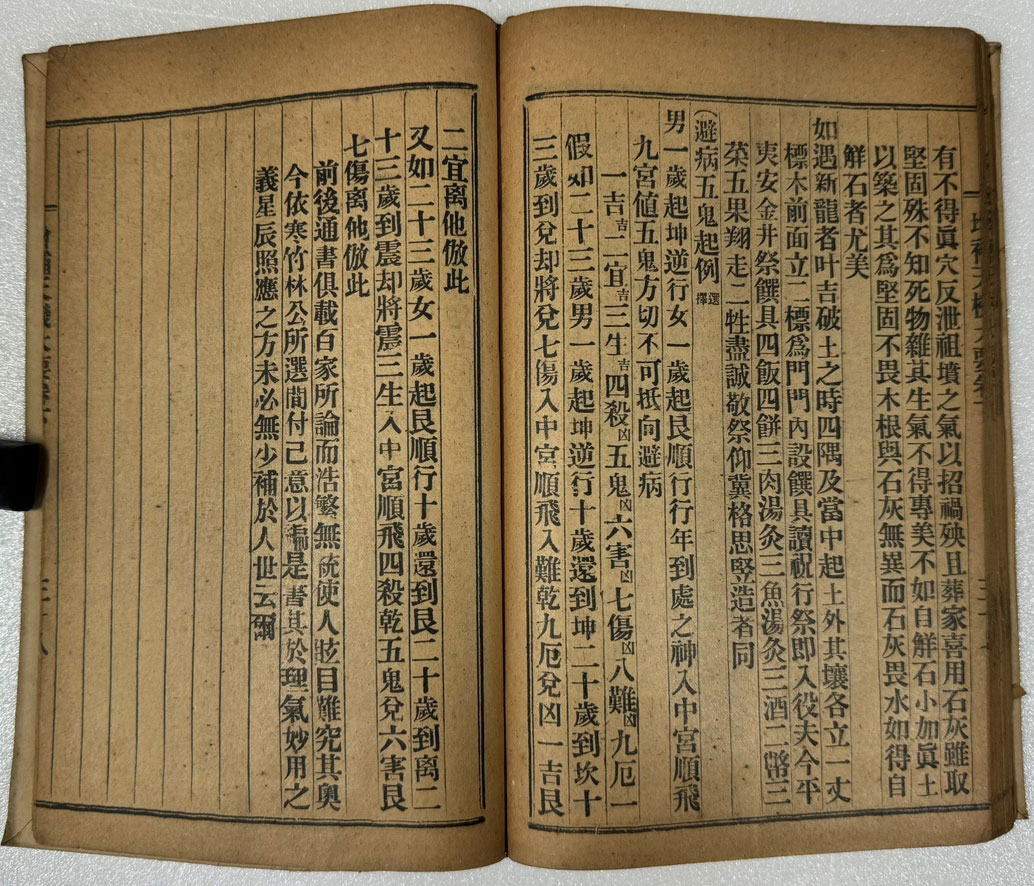 有不得眞穴反泄祖墳之氣以招禍殃且葬家喜用石灰雖取
堅固殊不知死物雜其生氣不得專美不如自鮮石小加眞土
以築之其爲堅固不畏木根與石灰無異而石灰畏水如得自
鮮石者尤美
如遇新龍者叶吉破土之時四隅及當中起土外其壤各立一丈
標木前面立二標爲門門內設饌具讀祝行祭即入役夫今平
夷安金井祭饌具四飯四餠三肉湯灸三魚湯灸三酒二幣三
菜五果翔走二牲盡誠敬祭仰冀格思竪造者同
(避病五鬼起例 選擇
男一歲起坤逆行女一歲起艮順行行年到處之神入中宮順飛
九宮値五鬼方切不可抵向避病
一吉吉二宜吉三生吉四殺凶五鬼凶六害凶七傷凶八難凶九厄一
假如二十三歲男一歲起坤逆行十歲還到坤二十歲到坎十
三歲到兌却將兌七傷入中宮順飛入難乾九厄兌凶一吉艮
二宜离他倣此
又如二十三歲女一歲起艮順行十歲還到艮二十歲到离二
十三歲到震却將震三生入中宮順飛四殺乾五鬼兌六害艮
七傷离他倣此
前後通書俱載百家所論而浩繁無統使人眩目難究其奧
今依寒竹林公所選蕳付己意以編是書其於理氣妙用之
義星辰照應之方未必無少補於人世云爾